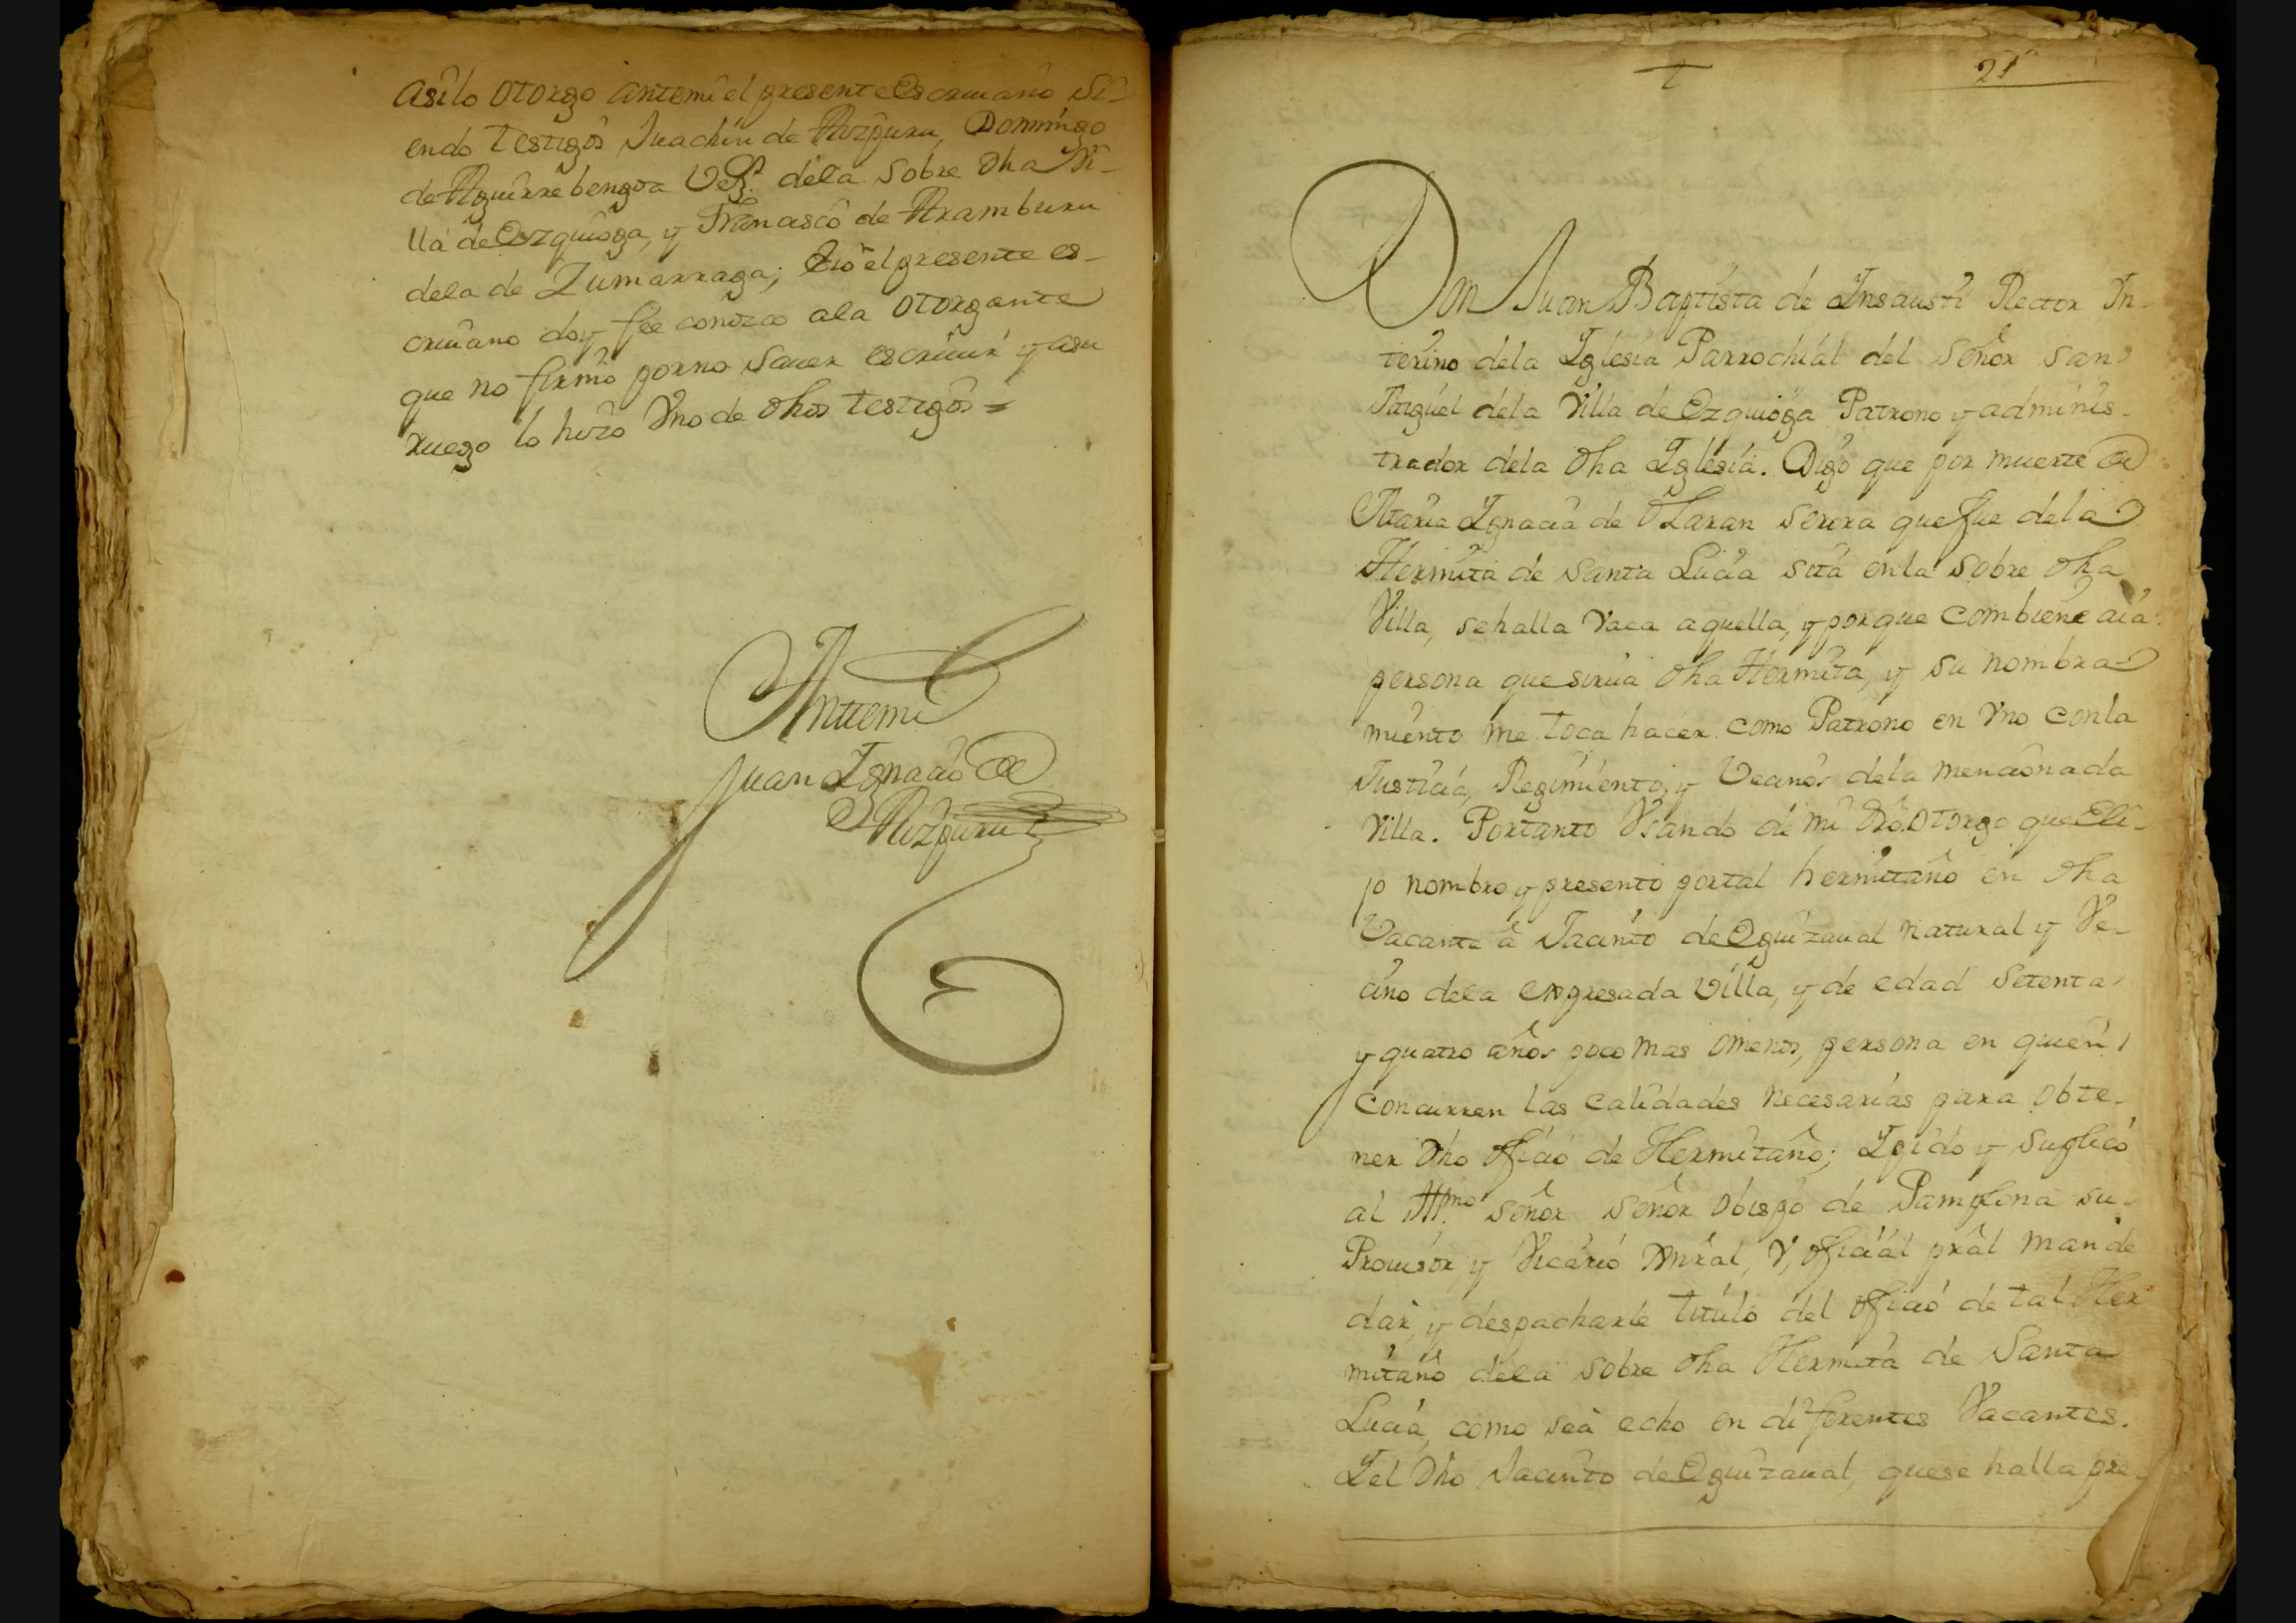 asilo otorgo antemi el presente escriuano si-
endo testigos Juachin de Aizpuru, Domingo
de Aguirrebengoa Vez.s dela sobre dha Vi-
lla de Ezquioga, y Francisco de Aramburu
dela de Zumarraga; è io el presente es-
criuano doy fee conozco ala otorgante
que no firmò por no sauer escriuir y asu
ruego lo hizo Vno de dhos testigos =
Anttemi
Juan Ignacio de
Aizpuru
21
Don Juan Baptista de Insausti Rector In-
terino dela Iglesia Parrochial del Señor San
Miguel dela Villa de Ezquioga Patrono y adminis-
trador dela dha Iglesia. Digo que por muerte de
Maria Ignacia de Olaran serora que fue dela
Hermita de Santa Lucia sita enla sobre dha
Villa, sehalla Vaca aquella, y porque combiene aia
persona que sirua dha Hermita, y su nombra-
miento me toca hacer como Patrono en Vno conla
Justicia, Regimiento, y Vecinos dela mencionada
Villa. Portanto Vsando de mi dro. otorgo que Eli-
jo nombro y presento portal hermitaño en dha
Vacante à Jacinto de Eguizaual natural y Ve-
cino dela expresada Villa, y de edad setenta
y quatro años poco mas omenos, persona en quien
concurren las calidades necesarias para obte-
ner dho oficio de Hermitaño; I pido y suplico
al Illmo Señor Señor Obispo de Pamplona su
Prouisor, y Vicario Xnral, V, oficial pràl mande
dar, y despacharle titulo del oficio de tal Her
mitaño dela sobre dha Hermita de Santa
Lucia, como seà echo en diferentes Vacantes.
I el dho Jacinto de Eguizaual, quese halla pre-